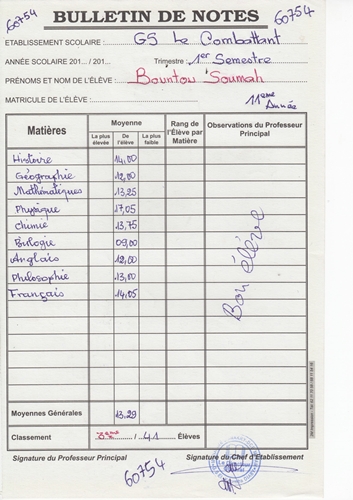 60754
BULLETIN DE NOTES
60754
ETABLISSEMENT SCOLAIRE : GS Le Combattant
ANNÉE SCOLAIRE 201... / 201... Trimestre : 1er Semestre
PRÉNOMS ET NOM DE L'ÉLÈVE : Bountou Soumah
MATRICULE DE L'ÉLÈVE : 11eme Année
Matières
Moyenne
La plus élevée
De l'élève
La plus faible
Rang de l'Élève par Matière
Observations du Professeur Principal
Histoire 14,00
Géographie 12,00
Mathématiques 13,25
Physique 17,05
Chimie 13,75
Biologie 09,00
Anglais 12,00
Philosophie 13,00
Français 14,05
Bon élève
Moyennes Générales 13.29
Classement / 41 Élèves
Signature du Professeur Principal
Signature du Chef d'Établissement
60754